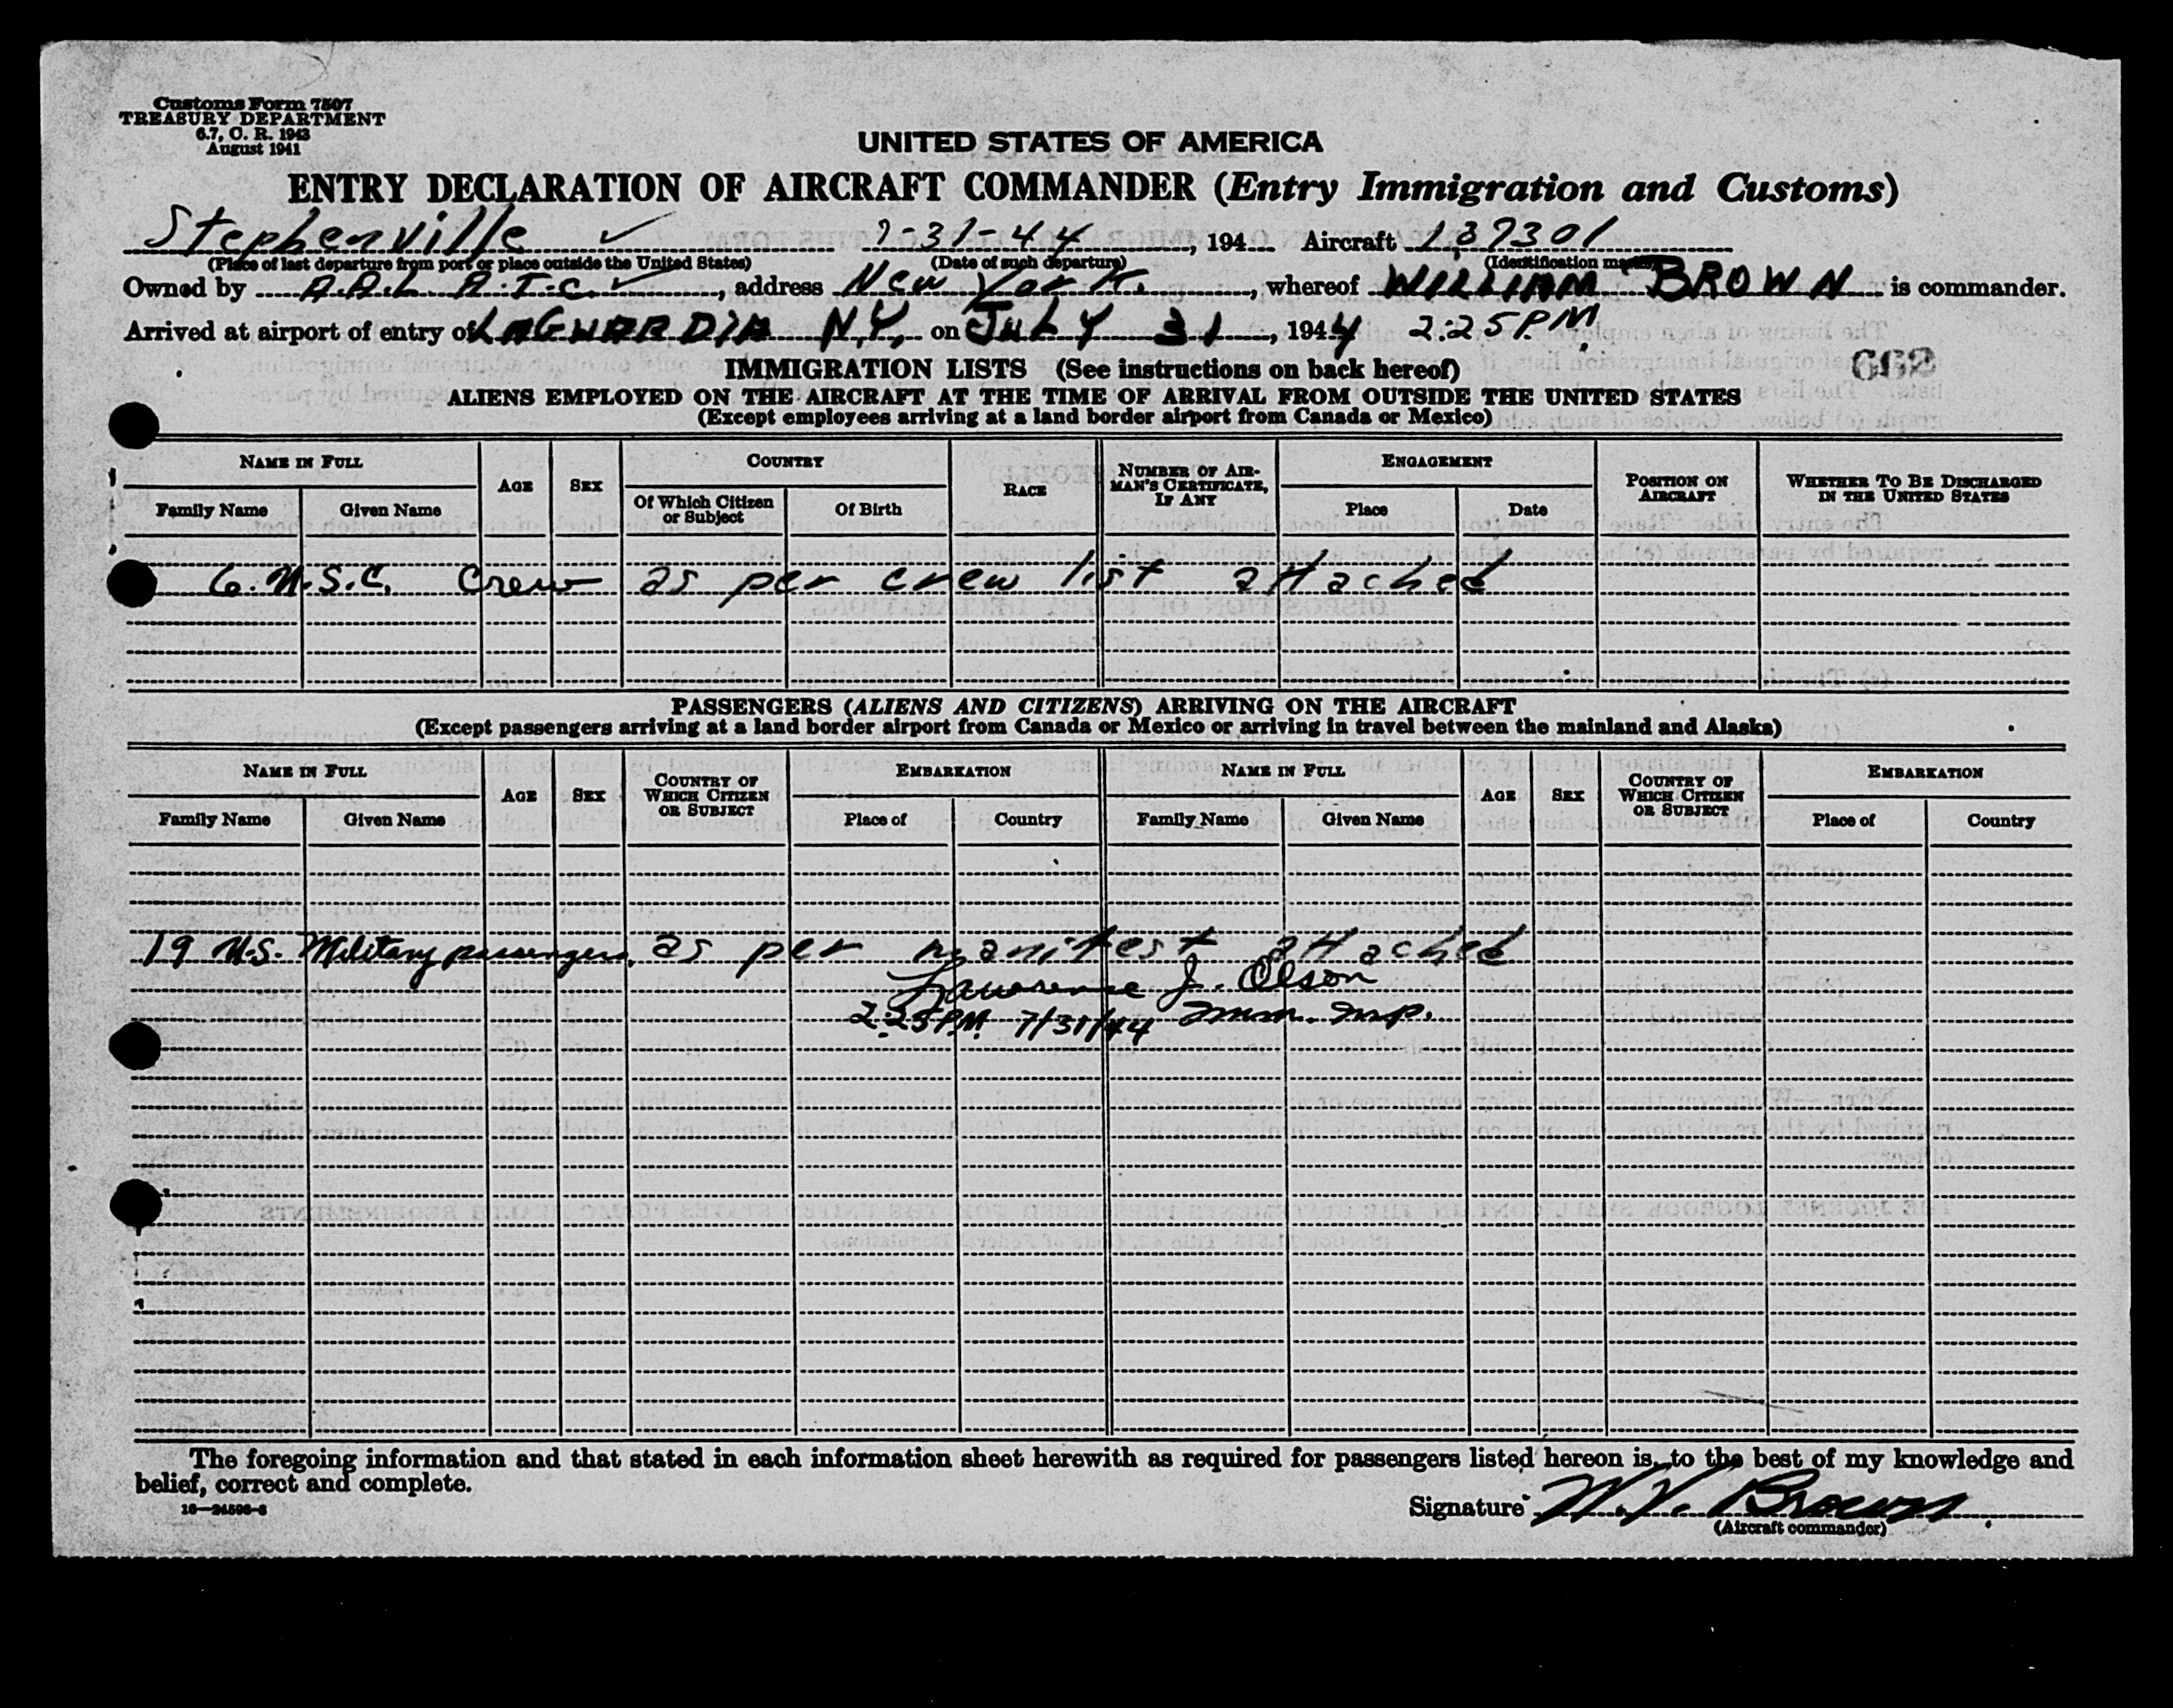 Customs Form 7507
TREASURY DEPARTMENT
6.7, C. R. 1943
August 1941
UNITED STATES OF AMERICA
ENTRY DECLARATION OF AIRCRAFT COMMANDER (Entry Immigration and Customs)
Stephenville ✓ 7-31-44, 194 Aircraft 137301
(Place of last departure from port or place outside the United States) (Date of such departure) (Identification marks)
Owned by A.A.L A.T.C. ✓, address New York., whereof WILLIAM BROWN is commander.
Arrived at airport of entry of LAGUARDIA N.Y. on JULY 31, 1944 2:25 PM.
IMMIGRATION LISTS (See instructions on back hereof)
662
ALIENS EMPLOYED ON THE AIRCRAFT AT THE TIME OF ARRIVAL FROM OUTSIDE THE UNITED STATES
(Except employees arriving at a land border airport from Canada or Mexico)
NAME IN FULL AGE SEX COUNTRY RACE NUMBER OF AIRMAN'S CERTIFICATE, IF ANY ENGAGEMENT POSITION ON AIRCRAFT WHETHER TO BE DISCHARGED IN THE UNITED STATES
Family Name Given Name Of Which Citizen or Subject Of Birth Place Date
6. U.S.C. Crew as per crew list attached
PASSENGERS (ALIENS AND CITIZENS) ARRIVING ON THE AIRCRAFT
(Except passengers arriving at a land border airport from Canada or Mexico or arriving in travel between the mainland and Alaska)
NAME IN FULL AGE SEX COUNTRY OF WHICH CITIZEN OR SUBJECT EMBARKATION NAME IN FULL AGE SEX COUNTRY OF WHICH CITIZEN OR SUBJECT EMBARKATION
Family Name Given Name Place of Country Family Name Given Name Place of Country
19 U.S. Military passengers. as per manifest attached
Lawrence J. Olson
2:25 PM. 7/31/44 Imm. Insp.
The foregoing information and that stated in each information sheet herewith as required for passengers listed hereon is, to the best of my knowledge and
belief, correct and complete.
Signature W.V. Brown
16—24596-3
(Aircraft commander)